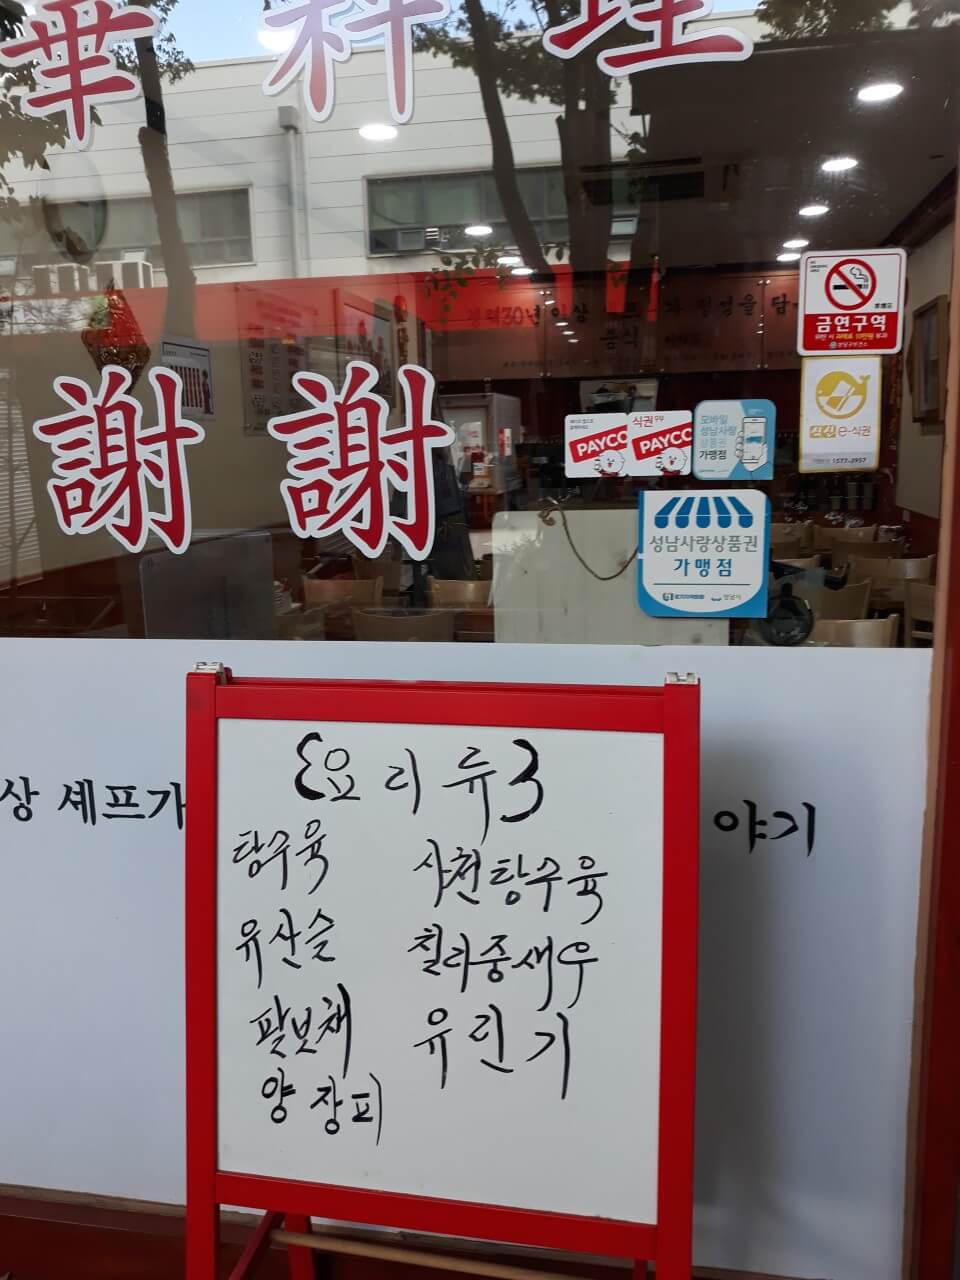 華 料 理
謝 謝
경력30년이상
음식
금연구역
식권
PAYCO
PAYCO
모바일
성남사랑
상품권
가맹점
e-식권
1577-3957
성남사랑상품권
가맹점
성남시
상 셰프가
야기
{요리류}
탕수육
유산슬
팔보채
양장피
사천탕수육
칠리중새우
유린기